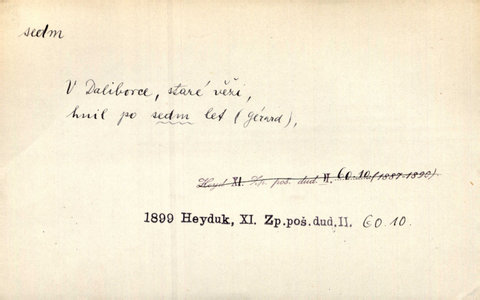 sedm
V Daliborce, staré věži,
hnil po sedm let (Gérard),
Heyd XI. Zp. poš. dud. II. 60.10 (1887-1890).
1899 Heyduk, XI. Zp.poš.dud.II. 60.10.